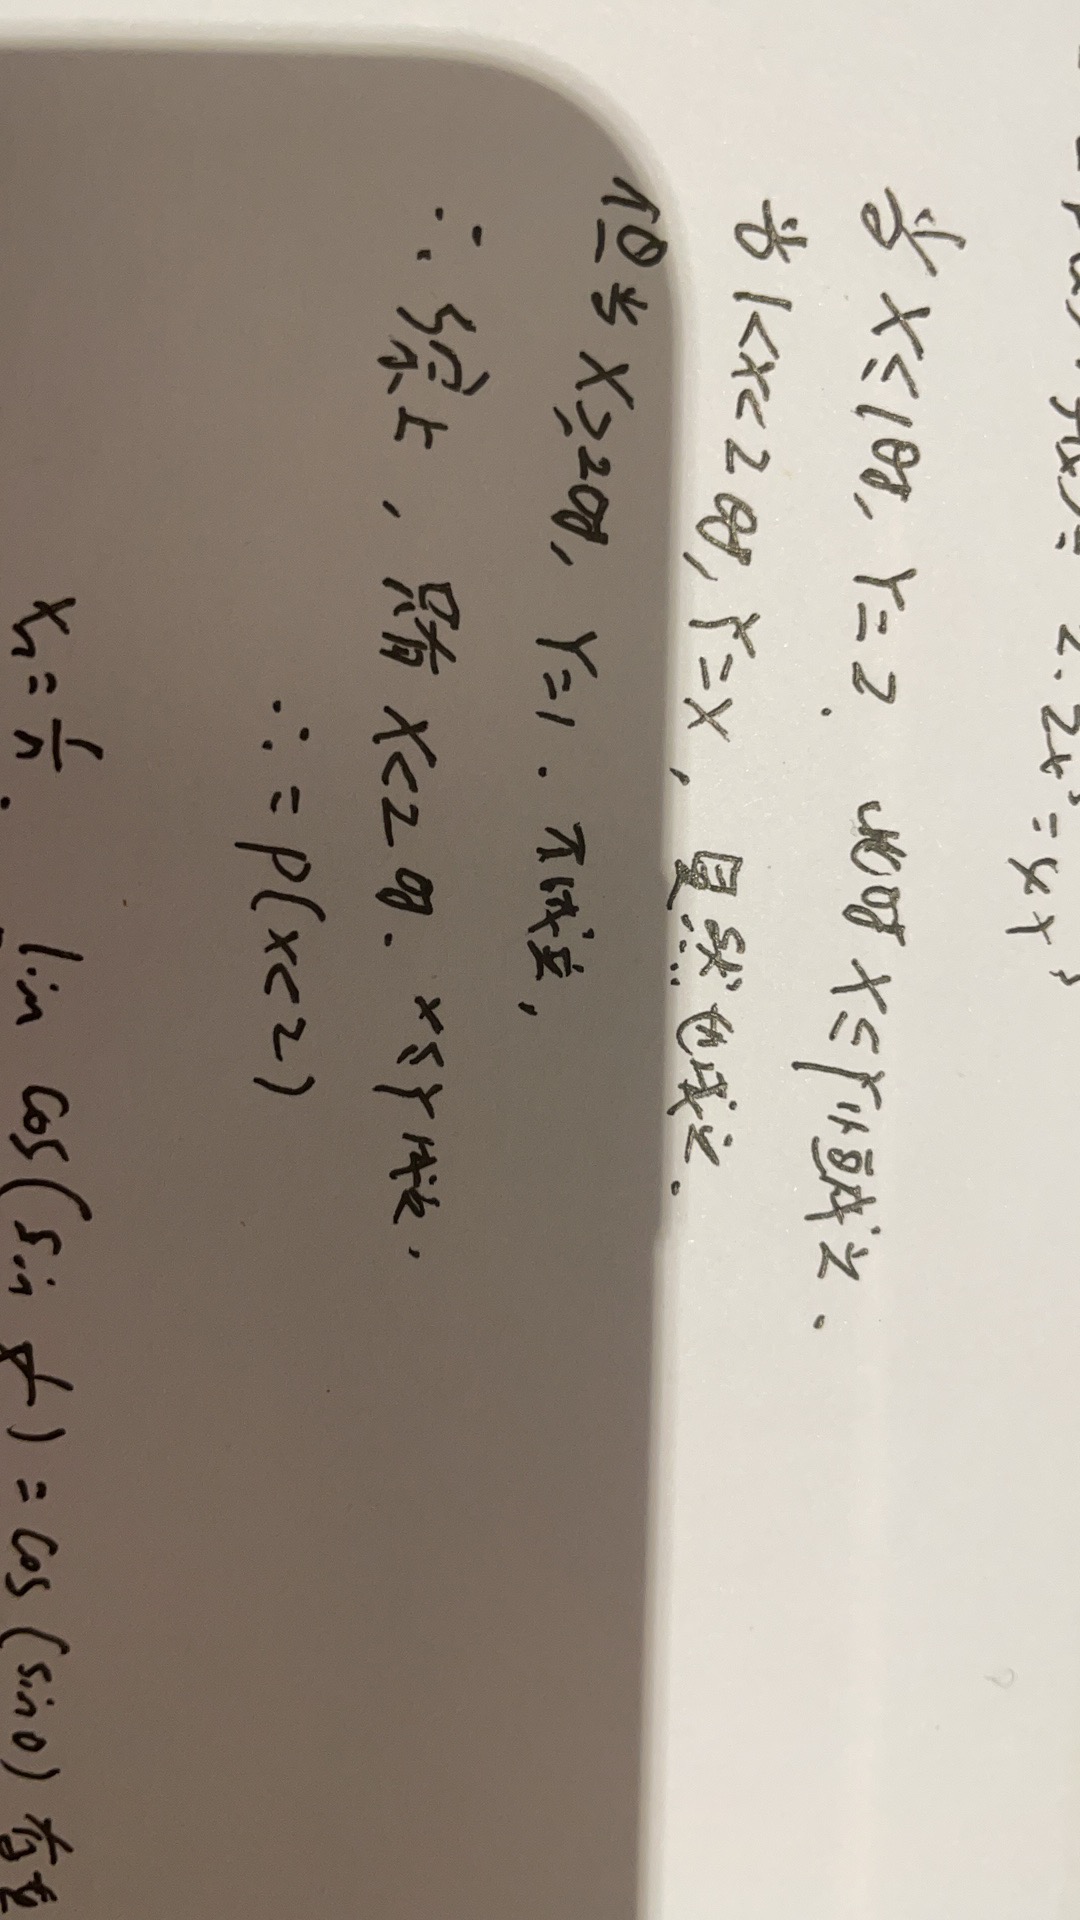 2. 2x³ = 4x³
当 X≤1时, Y=2. 此时 X≤Y恒成立.
当 1<X<2时, Y=X, 显然也成立.
但当 X≥2时, Y=1. 不成立,
∴ 综上, 只有 X<2时. X≤Y成立.
∴ = P(X<2)
xₙ = 1/n. lim cos(sin 1/x) = cos(sin0)